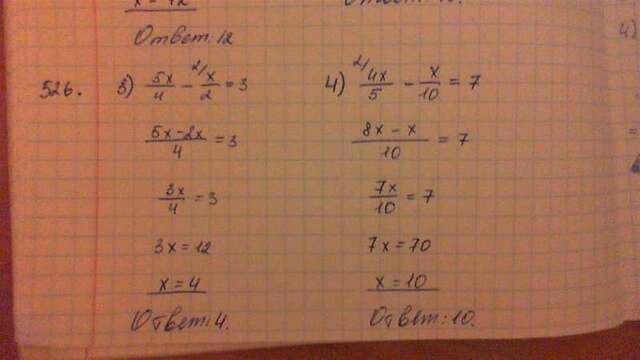 x = 12
Ответ: 12
526.
3) 5x/4 - 2/ x/2 = 3
(5x - 2x)/4 = 3
3x/4 = 3
3x = 12
x = 4
Ответ: 4.
4) 2/ 4x/5 - x/10 = 7
(8x - x)/10 = 7
7x/10 = 7
7x = 70
x = 10
Ответ: 10.
4)